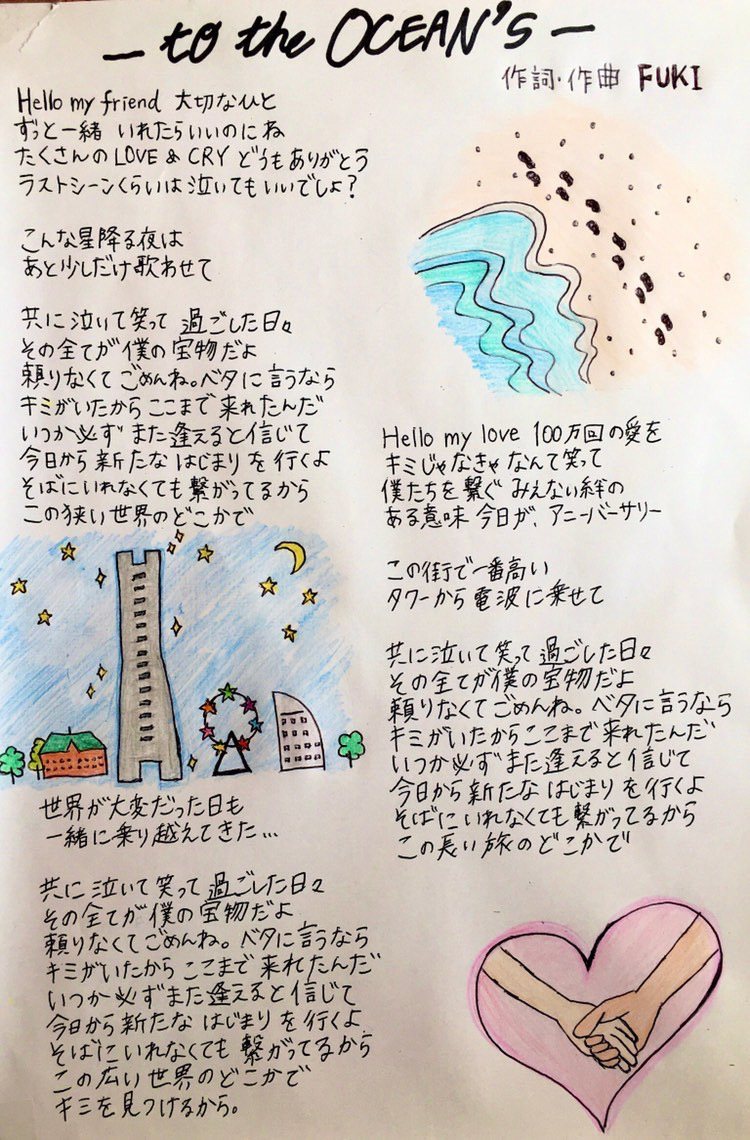 — to the OCEAN'S —
作詞・作曲 FUKI
Hello my friend 大切なひと
ずっと一緒 いれたらいいのにね
たくさんのLOVE & CRY どうもありがとう
ラストシーンくらいは泣いてもいいでしょ?
こんな星降る夜は
あと少しだけ歌わせて
共に泣いて笑って 過ごした日々
その全てが僕の宝物だよ
頼りなくてごめんね。ベタに言うなら
キミがいたからここまで来れたんだ
いつか必ず また逢えると信じて
今日から新たな はじまりを行くよ
そばにいれなくても繋がってるから
この狭い世界のどこかで
Hello my love 100万回の愛を
キミじゃなきゃなんて笑って
僕たちを繋ぐ みえない絆の
ある意味 今日が、アニーバーサリー
この街で一番高い
タワーから電波に乗せて
共に泣いて笑って過ごした日々
その全てが僕の宝物だよ
頼りなくてごめんね。ベタに言うなら
キミがいたからここまで来れたんだ
いつか必ずまた逢えると信じて
今日から新たな はじまりを行くよ
そばにいれなくても繋がってるから
この長い旅のどこかで
世界が大変だった日も
一緒に乗り越えてきた...
共に泣いて笑って過ごした日々
その全てが僕の宝物だよ
頼りなくてごめんね。ベタに言うなら
キミがいたからここまで来れたんだ
いつか必ずまた逢えると信じて
今日から新たな はじまりを行くよ
そばにいれなくても 繋がってるから
この広い世界のどこかで
キミを見つけるから。